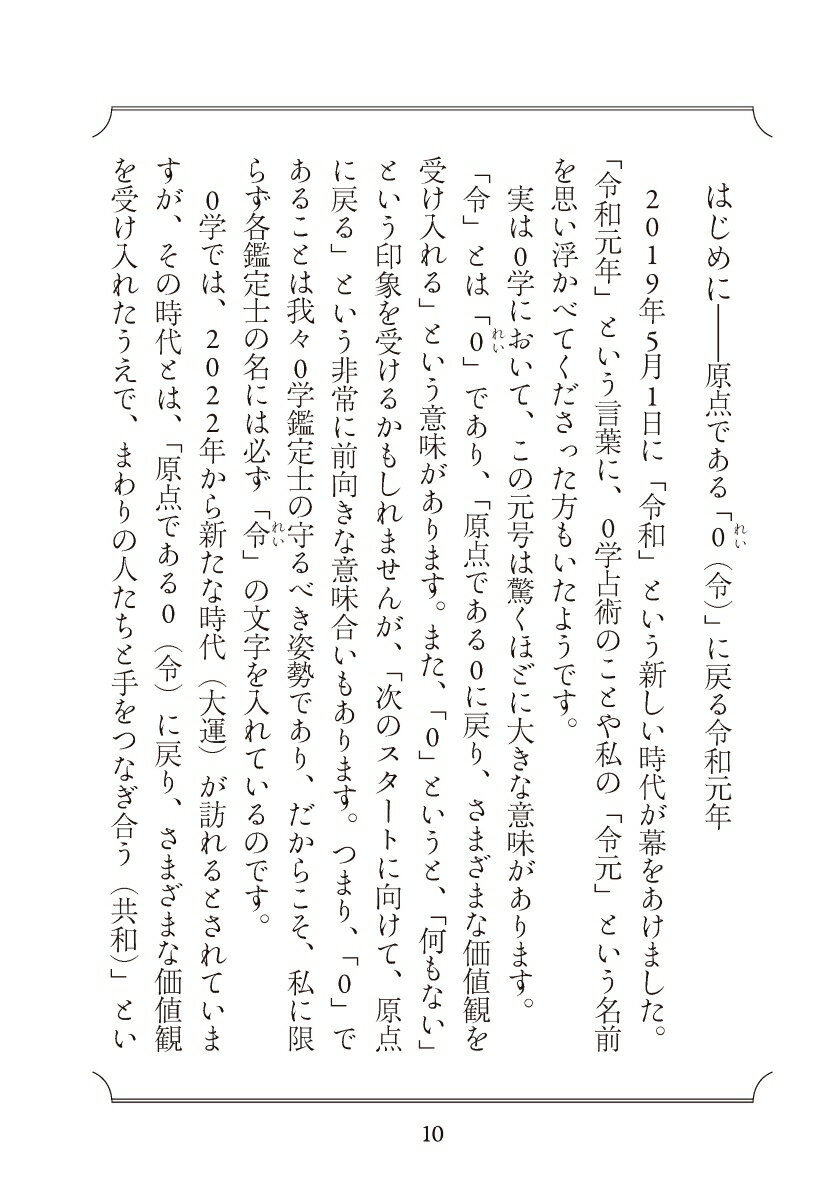 はじめに――原点である「0（令）」に戻る令和元年
2019年5月1日に「令和」という新しい時代が幕をあけました。
「令和元年」という言葉に、0学占術のことや私の「令元」という名前
を思い浮かべてくださった方もいたようです。
実は0学において、この元号は驚くほどに大きな意味があります。
「令」とは「0」であり、「原点である0に戻り、さまざまな価値観を
受け入れる」という意味があります。また、「0」というと、「何もない」
という印象を受けるかもしれませんが、「次のスタートに向けて、原点
に戻る」という非常に前向きな意味合いもあります。つまり、「0」で
あることは我々0学鑑定士の守るべき姿勢であり、だからこそ、私に限
らず各鑑定士の名には必ず「令」の文字を入れているのです。
0学では、2022年から新たな時代（大運）が訪れるとされていま
すが、その時代とは、「原点である0（令）に戻り、さまざまな価値観
を受け入れたうえで、まわりの人たちと手をつなぎ合う（共和）」とい
10